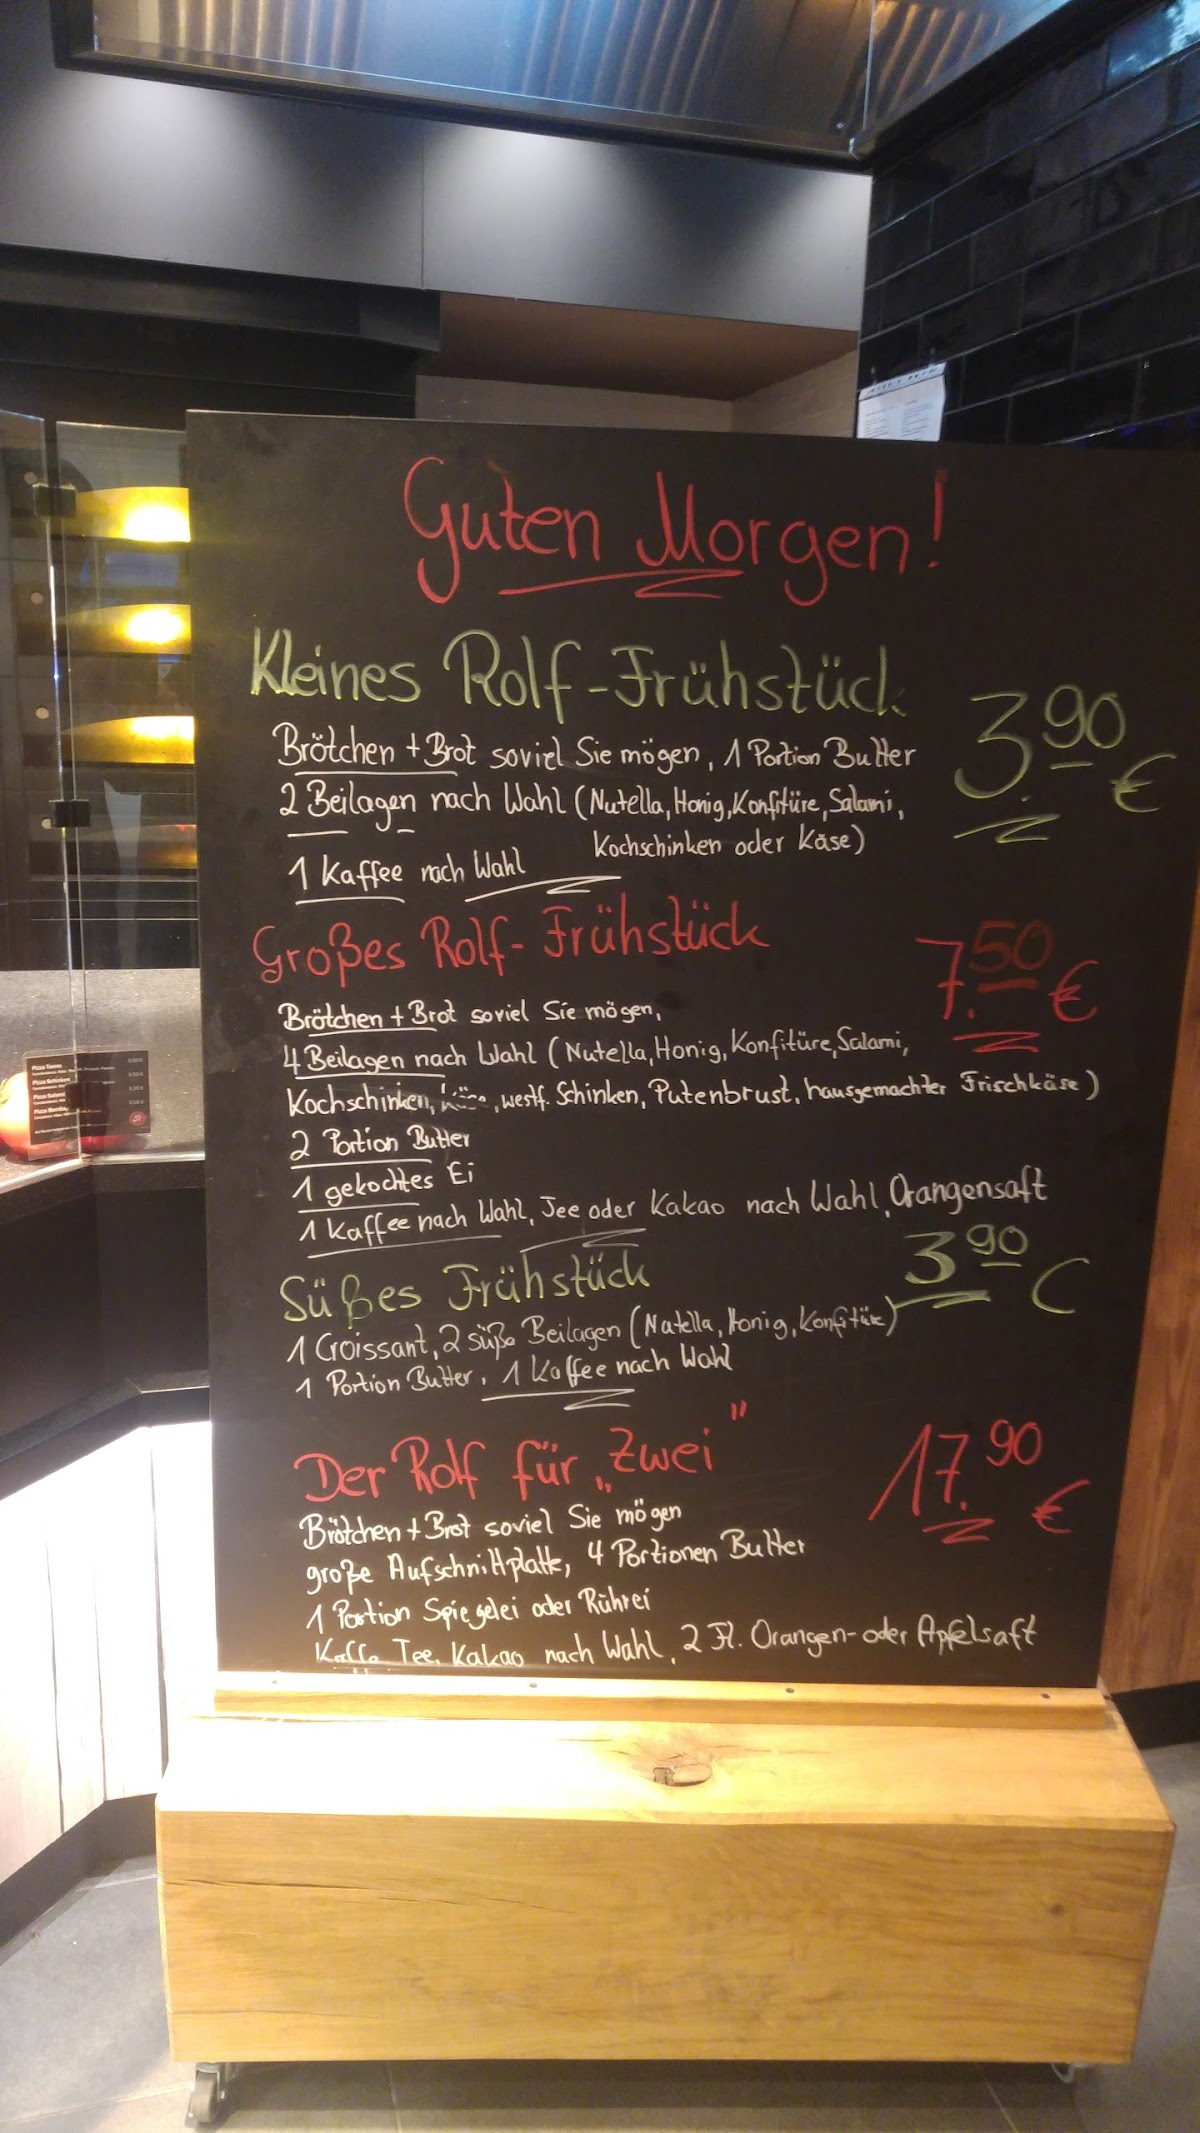 Guten Morgen!
Kleines Rolf-Frühstück
3.90 €
Brötchen + Brot soviel Sie mögen, 1 Portion Butter
2 Beilagen nach Wahl (Nutella, Honig, Konfitüre, Salami,
Kochschinken oder Käse)
1 Kaffee nach Wahl
Großes Rolf-Frühstück
7.50 €
Brötchen + Brot soviel Sie mögen,
4 Beilagen nach Wahl (Nutella, Honig, Konfitüre, Salami,
Kochschinken, Käse, westf. Schinken, Putenbrust, hausgemachter Frischkäse)
2 Portion Butter
1 gekochtes Ei
1 Kaffee nach Wahl, Tee oder Kakao nach Wahl, Orangensaft
Süßes Frühstück
3.90 €
1 Croissant, 2 süße Beilagen (Nutella, Honig, Konfitüre)
1 Portion Butter, 1 Kaffee nach Wahl
Der Rolf für „Zwei"
17.90 €
Brötchen + Brot soviel Sie mögen
große Aufschnittplatte, 4 Portionen Butter
1 Portion Spiegelei oder Rührei
Kaffe Tee, Kakao nach Wahl, 2 Fl. Orangen- oder Apfelsaft
Pizza Tonno
Pizza Schinken
Pizza Salami